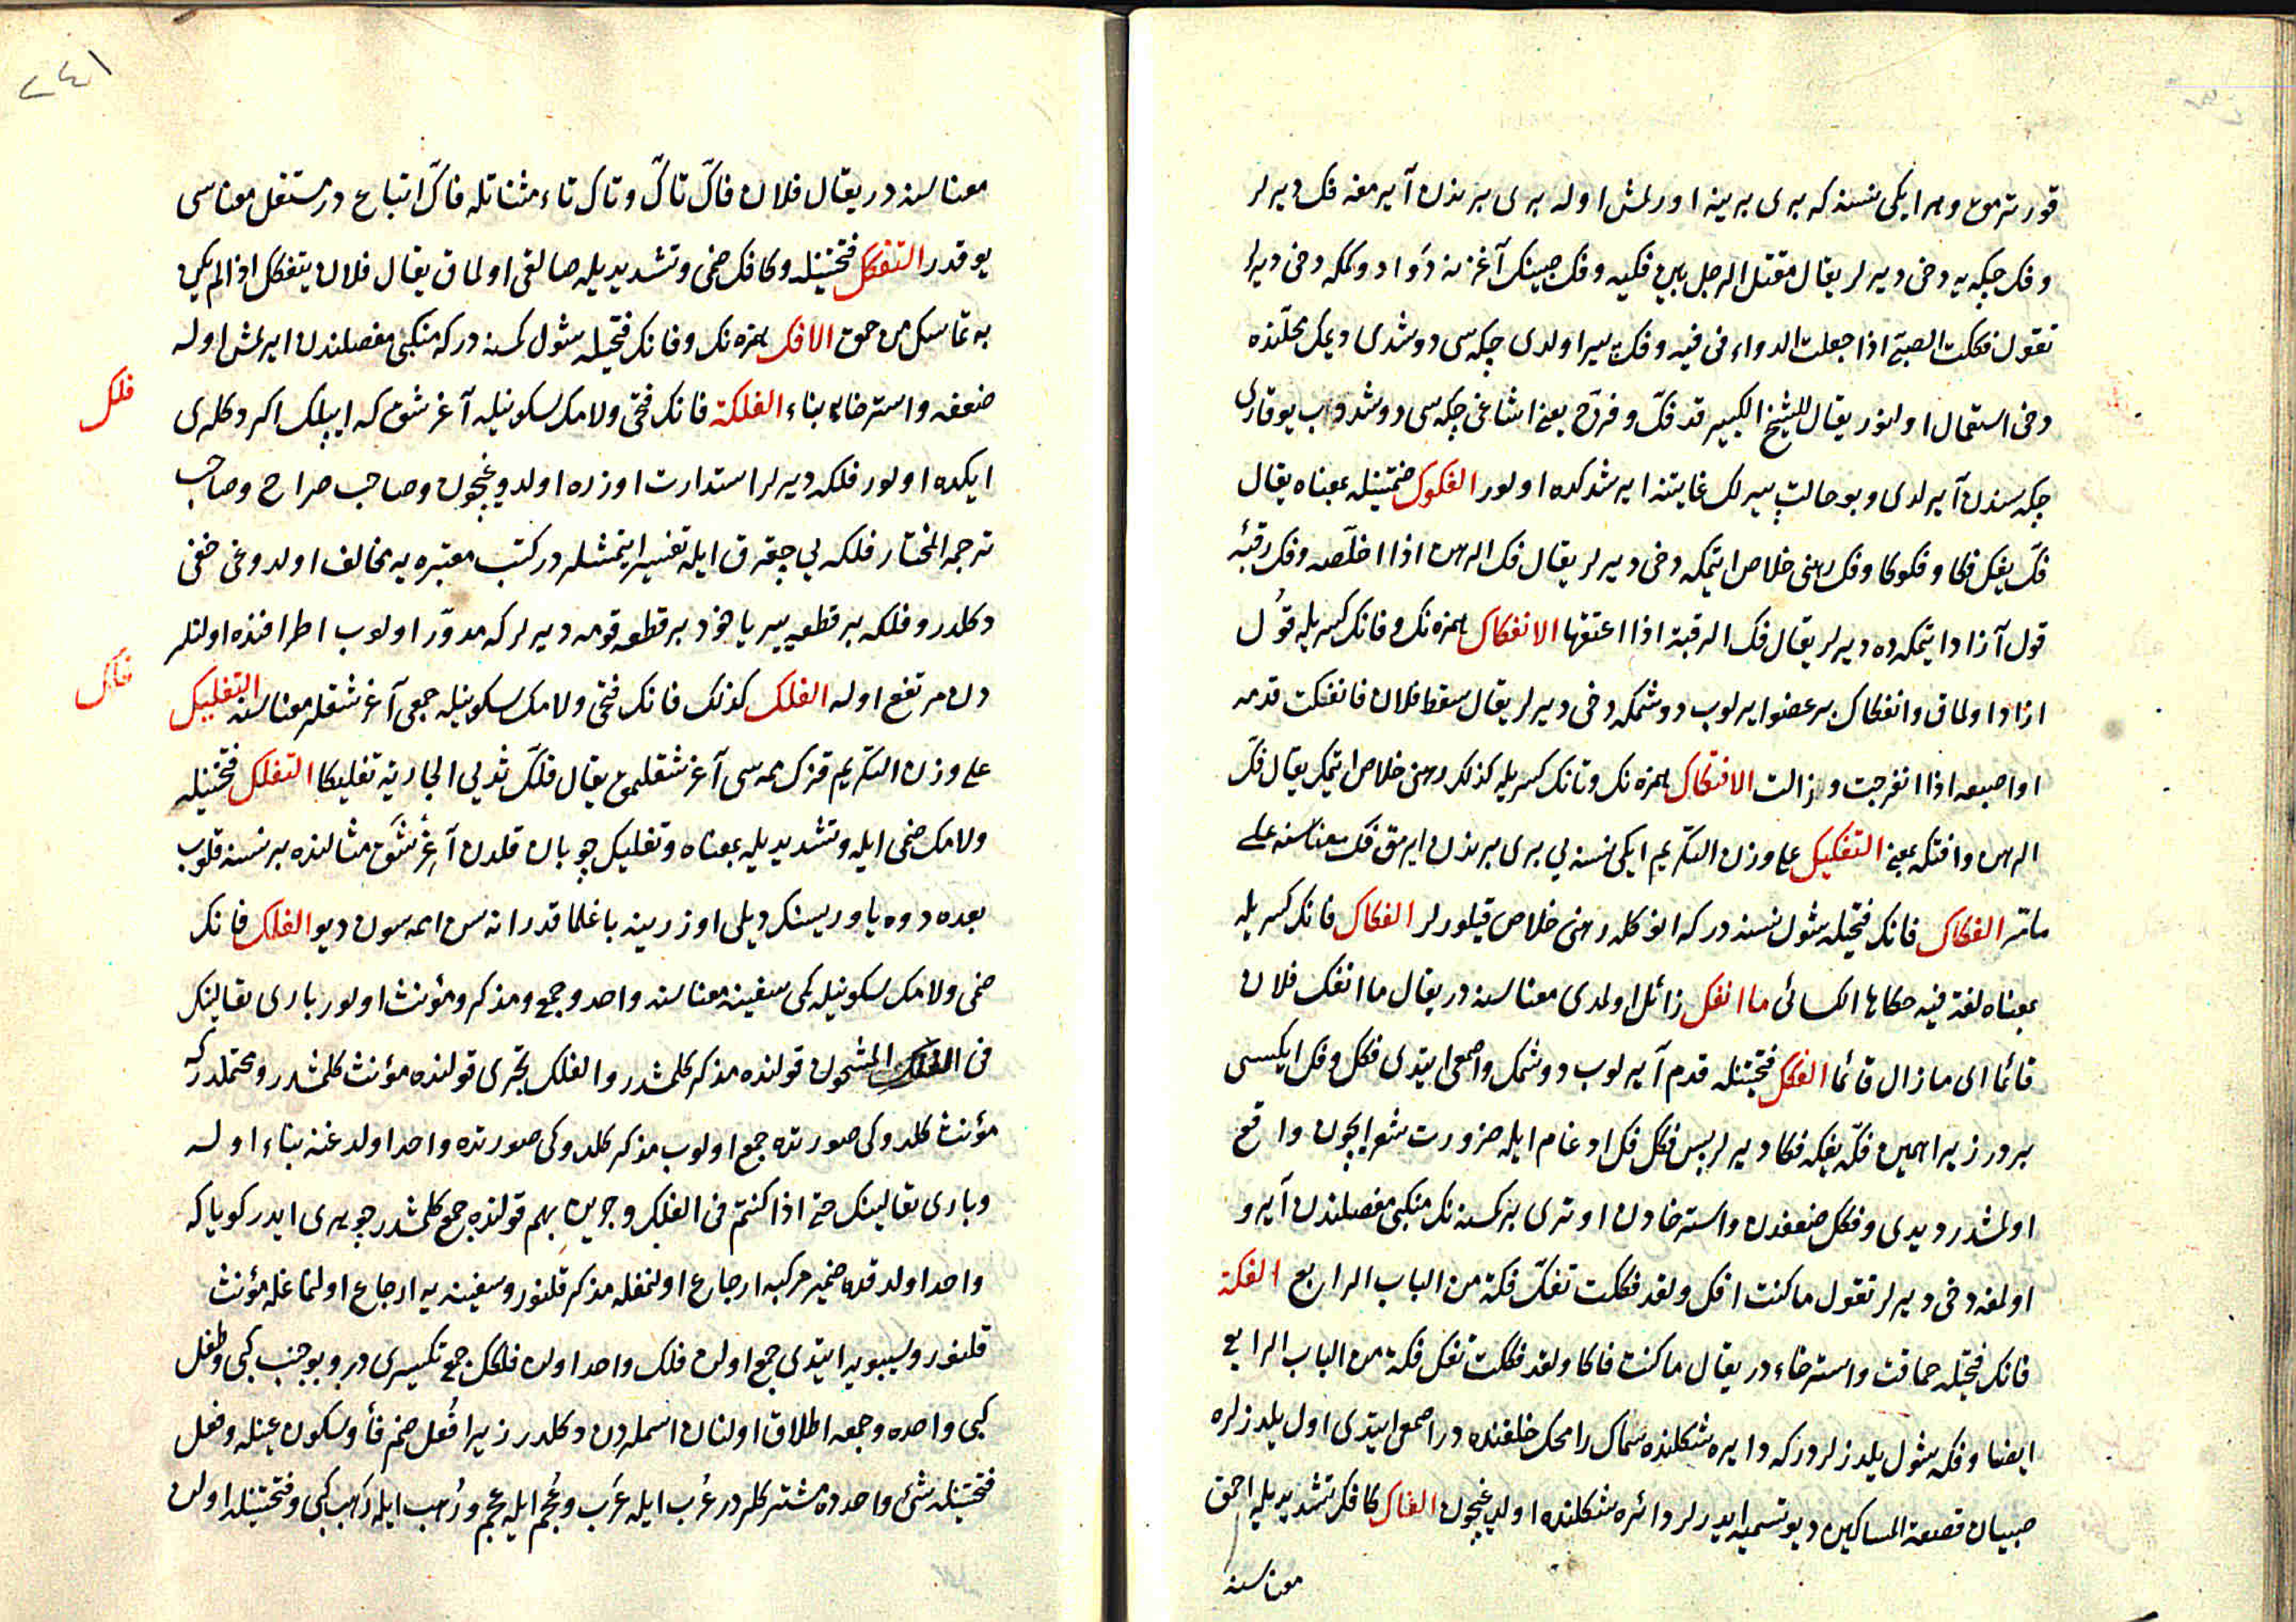 قورترمق وهر ايكى نسنه كه برى برينه اورلمش اوله برى برندن آيرمغه فك ديرلر
وفك چكه يه دخى ديرلر يقال مقتل الرجل بين فكيه وفك صبينك آغزنه دَوا دوكمكه دخى ديرلر
تقول فككت الصبىّ اذا جعلت الدواء فى فيه وفك پير اولدى چكه سى دوشدى ديمك محلّنده
دخى استعمال اولنور يقال للشيخ الكبير قد فكّ وفرّج يعنى اشاغى چكه سى دوشدى اب يوقارى
چكه سندن آيرلدى وبو حالت پيرلك غايتنه ايرشدكده اولور الفكوك ضمتينله بمعناه يقال
فكّ يفكّ فكا وفكوكا وفك رهنى خلاص ايتمكه دخى ديرلر يقال فك الرهن اذا اخلّصه وفك رقبه
قول آزاد ايتمكه ده ديرلر يقال فك الرقبة اذا اعتقها الانفكاك همزه نك وفانك كسريله قوُل
ازاد اولماق وانفكاك بر عضو ايرلوب دوشمكه دخى ديرلر يقال سقط فلان فانفكت قدمه
او اصبعه اذا انفرجت وزالت الافتكاك همزه نك وتانك كسريله كذلك رهن خلاص ايتمك يقال فكّ
الرهن وافتكه بمعنى التفكيك على وزن التكريم ايكى نسنه يى برى برندن ايرمق فك معناسنه على
مامّر الفكاك فانك فتحيله شول نسنه در كه انوكله رهنى خلاص قيلورلر الفكاك فانك كسريله
بمعناه لغة فيه حكاها الكسائى ما انفك زائل اولمدى معناسنه در يقال ما انفك فلان
قائما اى ما زال قائما الفكك فتحتينله قدم آيرلوب دوشمك واصمعى ايتدى فكك وفك ايكيسى
بردر زيرا همين فكّه يفكه فكا ديرلر پس فكك فك ادغام ايله ضرورت شعر ايچون واقع
اولمشدر ديدى وفكك ضعفدن واسترخادن اوترى بر كمسنه نك منكبى مفصلندن آيرو
اولمغه دخى ديرلر تقول ما كنت افك ولقد فككت تفكّ فكة من الباب الرابع الفكة
فانك فتحيله حماقت واسترخاء در يقال ما كنت فاكا ولقد فككت تفك فكة من الباب الرابع
ايضا وفكه شول يلدزلردر كه دايره شكلنده سماك رامحك خلفنده در اصمعى ايتدى اول يلدزلره
صبيان قصعة المساكين ديو تسميه ايدرلر دائره شكلنده اولديغيچون الفاكّ كافك تشديديله احمق
معناسنه
٢٤١
معناسنه در يقال فلان فاكّ تاكّ وتاك تاء مثناتله فاكّ اتباع در مستقل معناسى
يوقدر التفكك فتحتينله وكافك ضمى وتشديديله صالقى اولماق يقال فلان يتفكك اذا لم يكن
به تماسك من حمق الافك همزه نك وفانك فتحيله شول كمسنه در كه منكبى مفصلندن ايرلمش اوله
فلك
ضعفه واسترخايه بناء الفلكة فانك فتحى ولامك سكونيله آغرشق كه ايپلك اكردكلرى
ايكده اولور فلكه ديرلر استدارت اوزره اولديغيچون وصاحب صراح وصاحب
ترجمة المختار فلكه يى چقرق ايله تفسير ايتمشلر در كتب معتبره يه مخالف اولدوغى خفى
دكلدر وفلكه بر قطعه يير ياخود بر قطعه قومه ديرلر كه مدوّر اولوب اطرافنده اولنلر
فلك
دن مرتفع اوله الفلك كذلك فانك فتحى ولامك سكونيله جمعى آغرشقلر معناسنه التفليك
على وزن التكريم قزك ممه سى آغرشقلمق يقال فلكّ ثديى الجارية تفليكا التفلك فتحتينله
ولامك ضمى ايله وتشديديله بمعناه وتفليك چوبان قلدن آغرشَق مثالنده بر نسنه قلوب
بعده دوه ياوريسنك ديلى اوزرينه باغلماقدر اناسن اممه سون ديو الفلك فانك
ضمى ولامك سكونيله كمى سفينه معناسنه واحد وجمع ومذكر ومؤنث اولور بارى تعالينك
فى الفلك المشحون قولنده مذكر كلمشدر والفلك تجرى قولنده مؤنث كلمشدر ومحتملدر كه
مؤنث كلدوكى صورتده جمع اولوب مذكر كلدوكى صورتده واحد اولدغنه بناء اوله
وبارى تعالينك حتى اذا كنتم فى الفلك وجرين بهم قولنده جمع كلمشدر جوهرى ايدر كويا كه
واحد اولدقده ضمير مركبه ارجاع اولنمغله مذكر قلنور وسفينه يه ارجاع اولنماغله مؤنث
قلنور وسيبويه ايتدى جمع اولن فلك واحد اولن فلكك جمع تكسيرى در وبو جنب كبى وطفل
كبى واحده وجمعه اطلاق اولنان اسملردن دكلدر زيرا فُعل ضم فأ وسكون عينله وفعل
فتحتينله شئ واحدده مشتركلر در عُرب ايله عَرَب وعُجم ايله عجم ورُهب ايله رَهب كبى وفتحتينله اولن